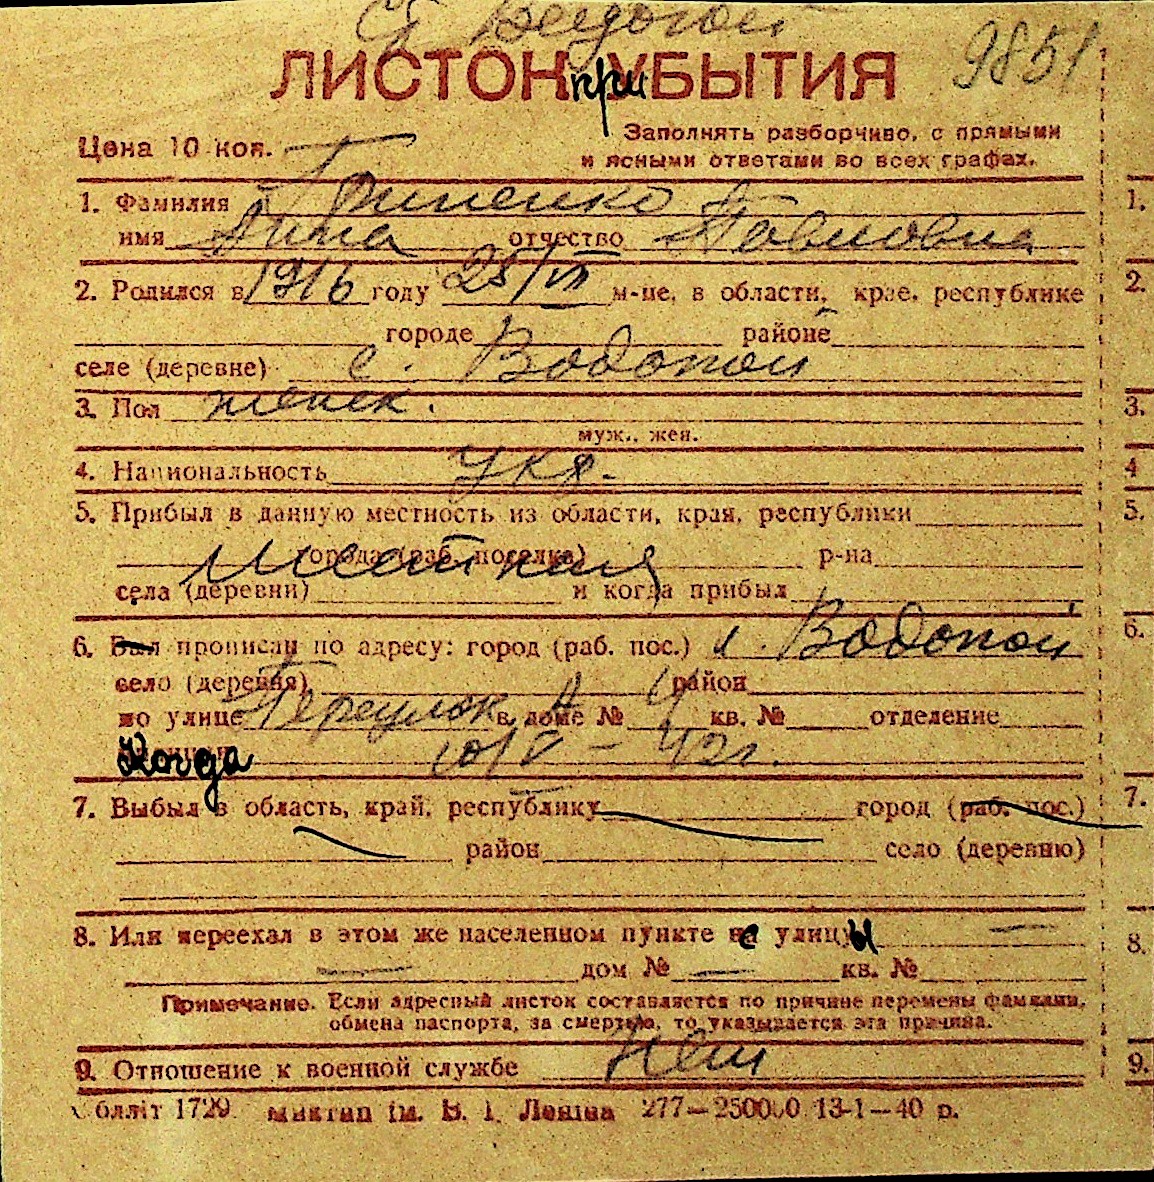 Водопой
9851
ЛИСТОК при УБЫТИЯ
Заполнять разборчиво, с прямыми
Цена 10 коп.
и ясными ответами во всех графах.
1. Фамилия Гриненко
имя Дина отчество Павловна
2. Родился в 1916 году 25/VII м-це, в области, крае, республике
городе районе
селе (деревне) с. Водопой
3. Пол женск.
муж., жен.
4. Национальность укр.
5. Прибыл в данную местность из области, края, республики
города (раб. поселка) р-на
Местная
села (деревни) и когда прибыл
6. Был прописан по адресу: город (раб. пос.) Водопой
село (деревня) район
по улице Переулок А в доме № 4 кв. № отделение
Когда 10/V – 42 г.
7. Выбыл в область, край, республику город (раб. пос.)
район село (деревню)
8. Или переехал в этом же населенном пункте с улицы —
— дом № — кв. №
Примечание. Если адресный листок составляется по причине перемены фамилии,
обмена паспорта, за смертью, то указывается эта причина.
9. Отношение к военной службе Нет
Обллiт 1729. Миктип iм. В. I. Ленiна 277—250000 13-1—40 р.
1.
2.
3.
4
5.
6.
7.
8.
9.